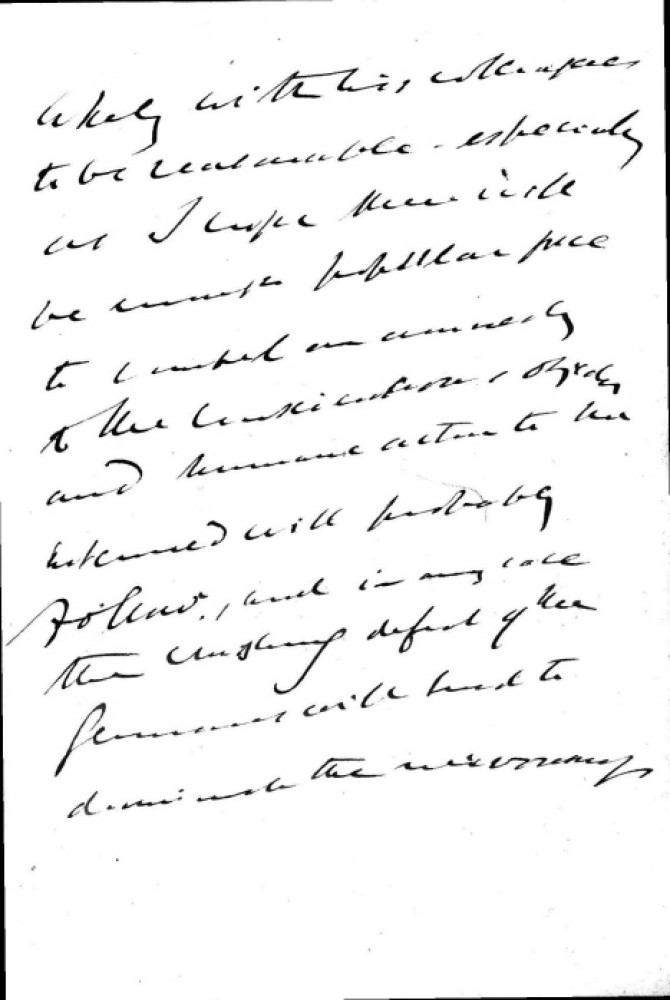 likely with his colleagues
to be reasonable - especially
as I hope there will
be enough popular
to an amnesty
to the Conscientious objectors
and humane action to the
interned will probably
follow, and in any case
the crushing defeat of the
Germans will tend to
diminish the